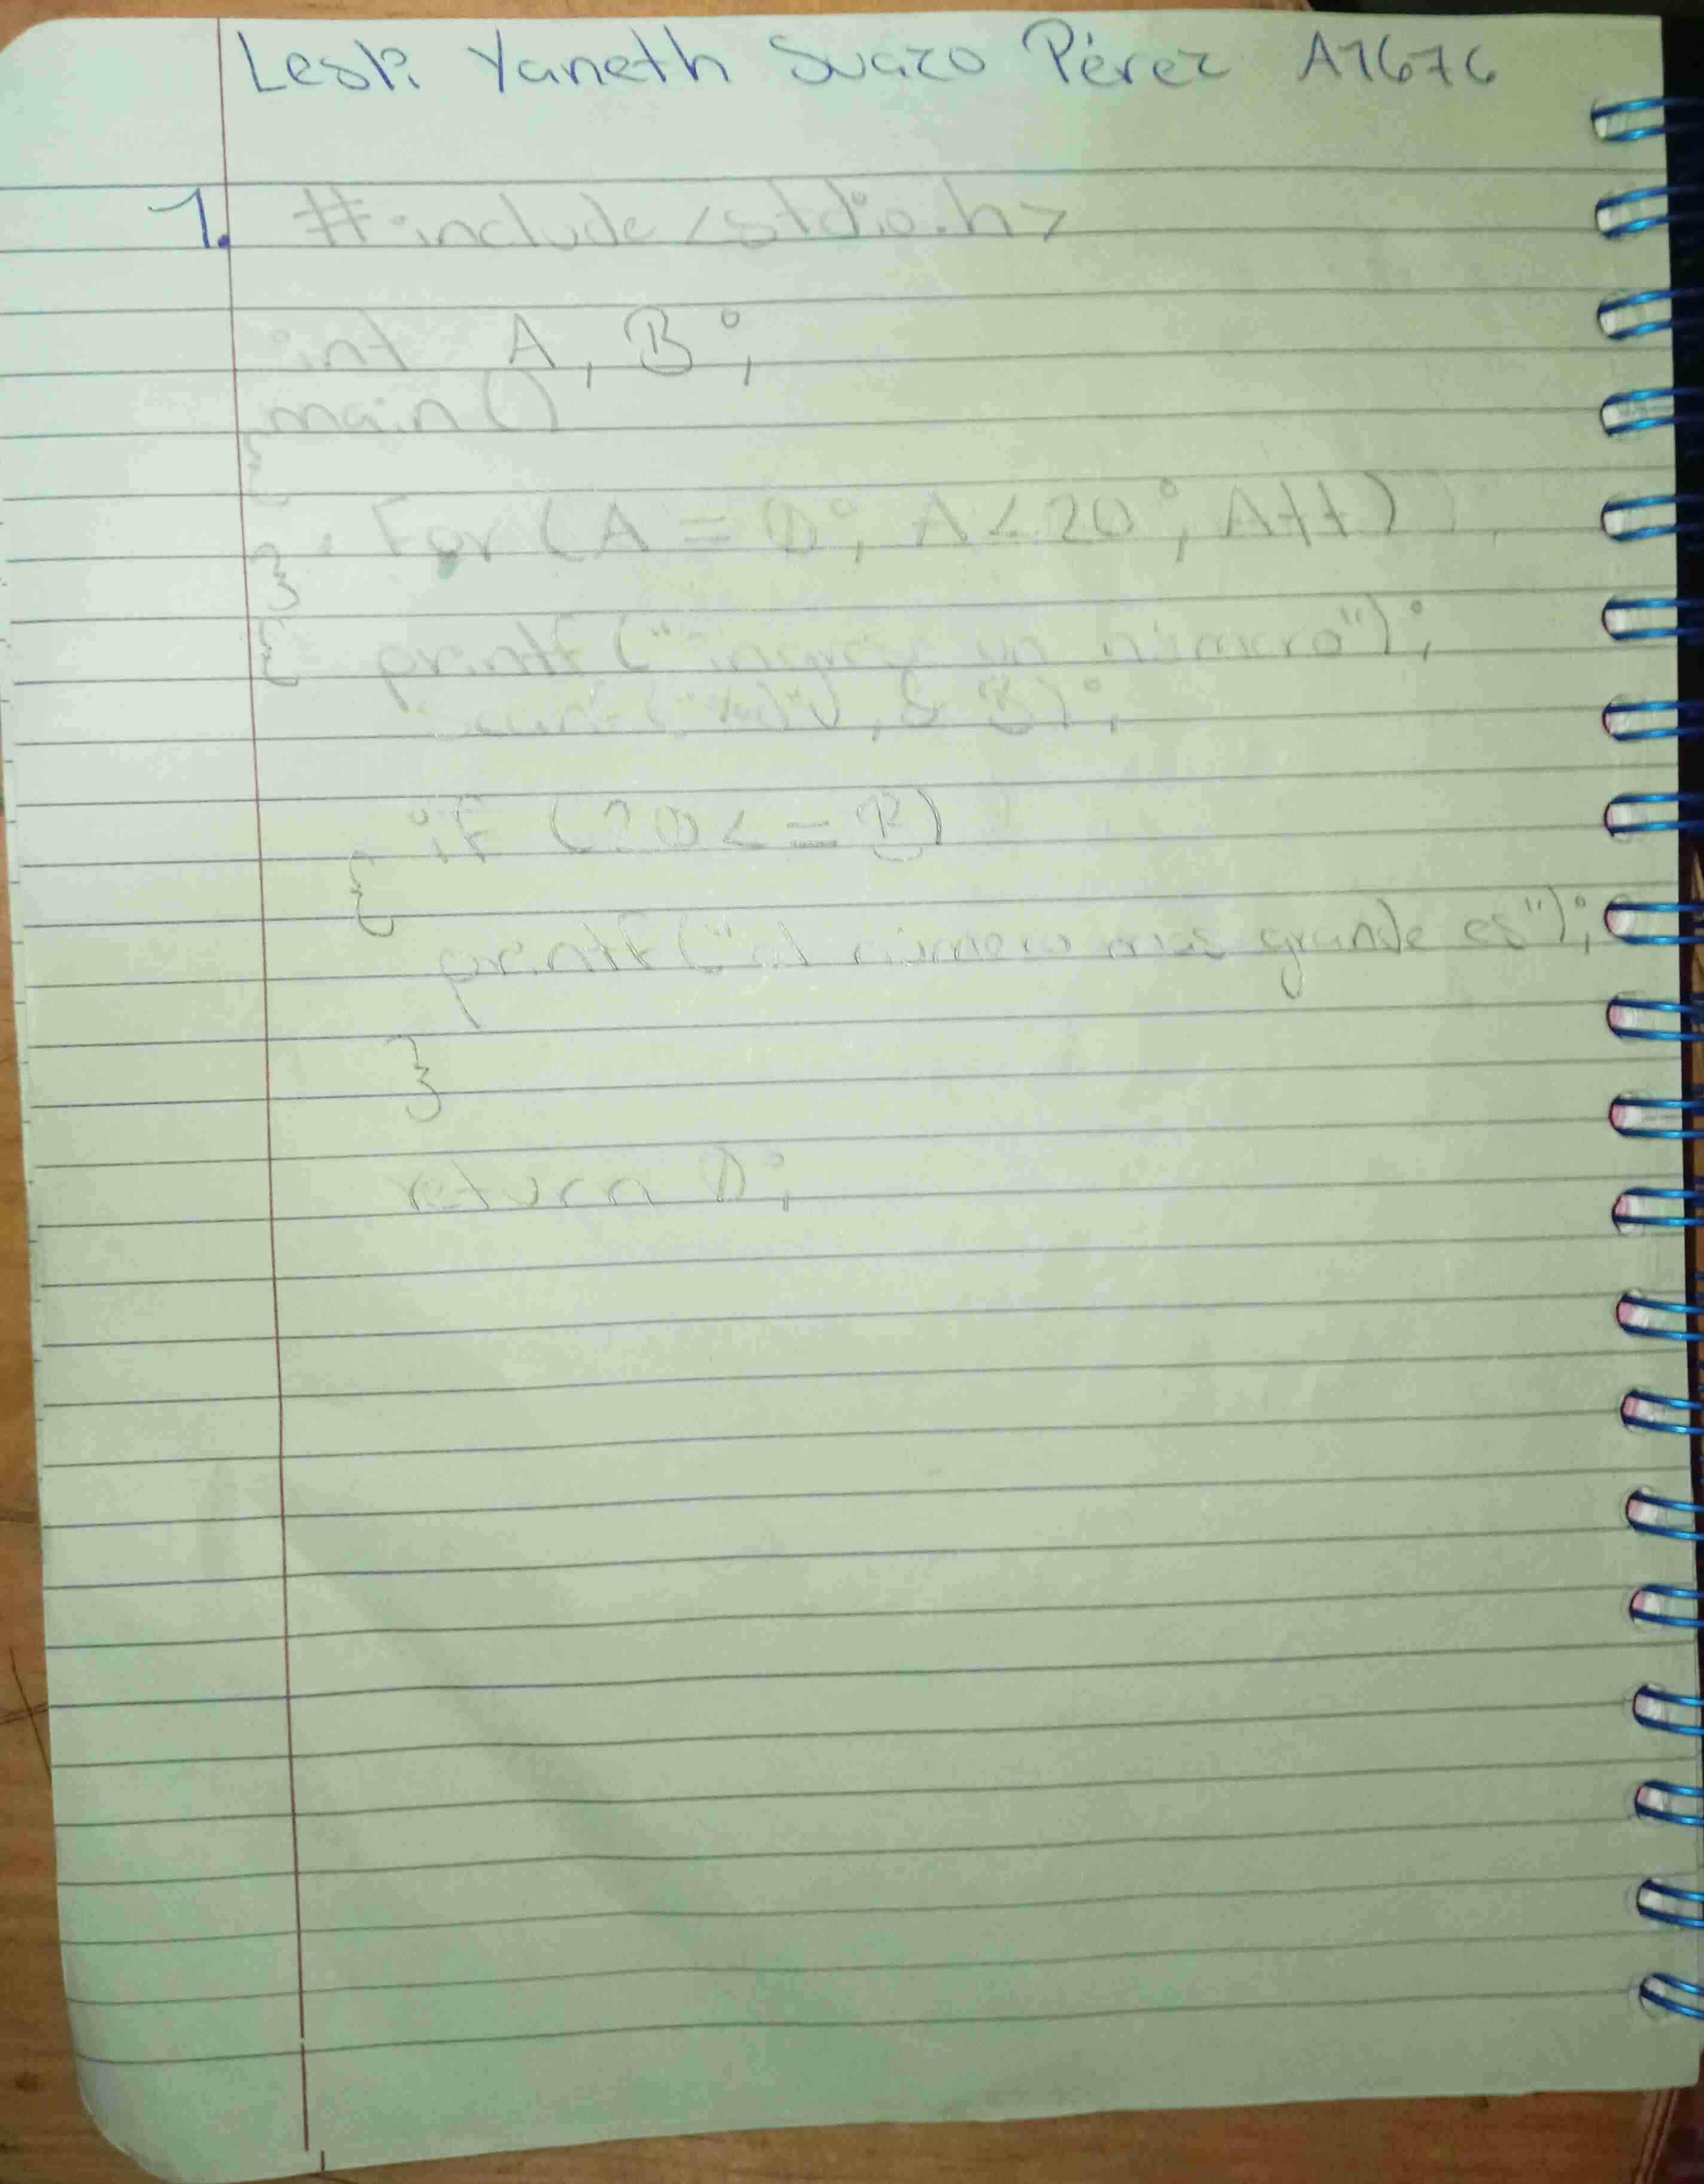 Lesli Yaneth Suazo Pérez A1676
1. #include <stdio.h>
int A, B;
main()
{
For (A = 0; A < 20; A++)
}
{ printf ("ingrese un número");
scanf ("%d", & B);
if (20 < = B)
{
printf ("el número mas grande es");
}
return 0;